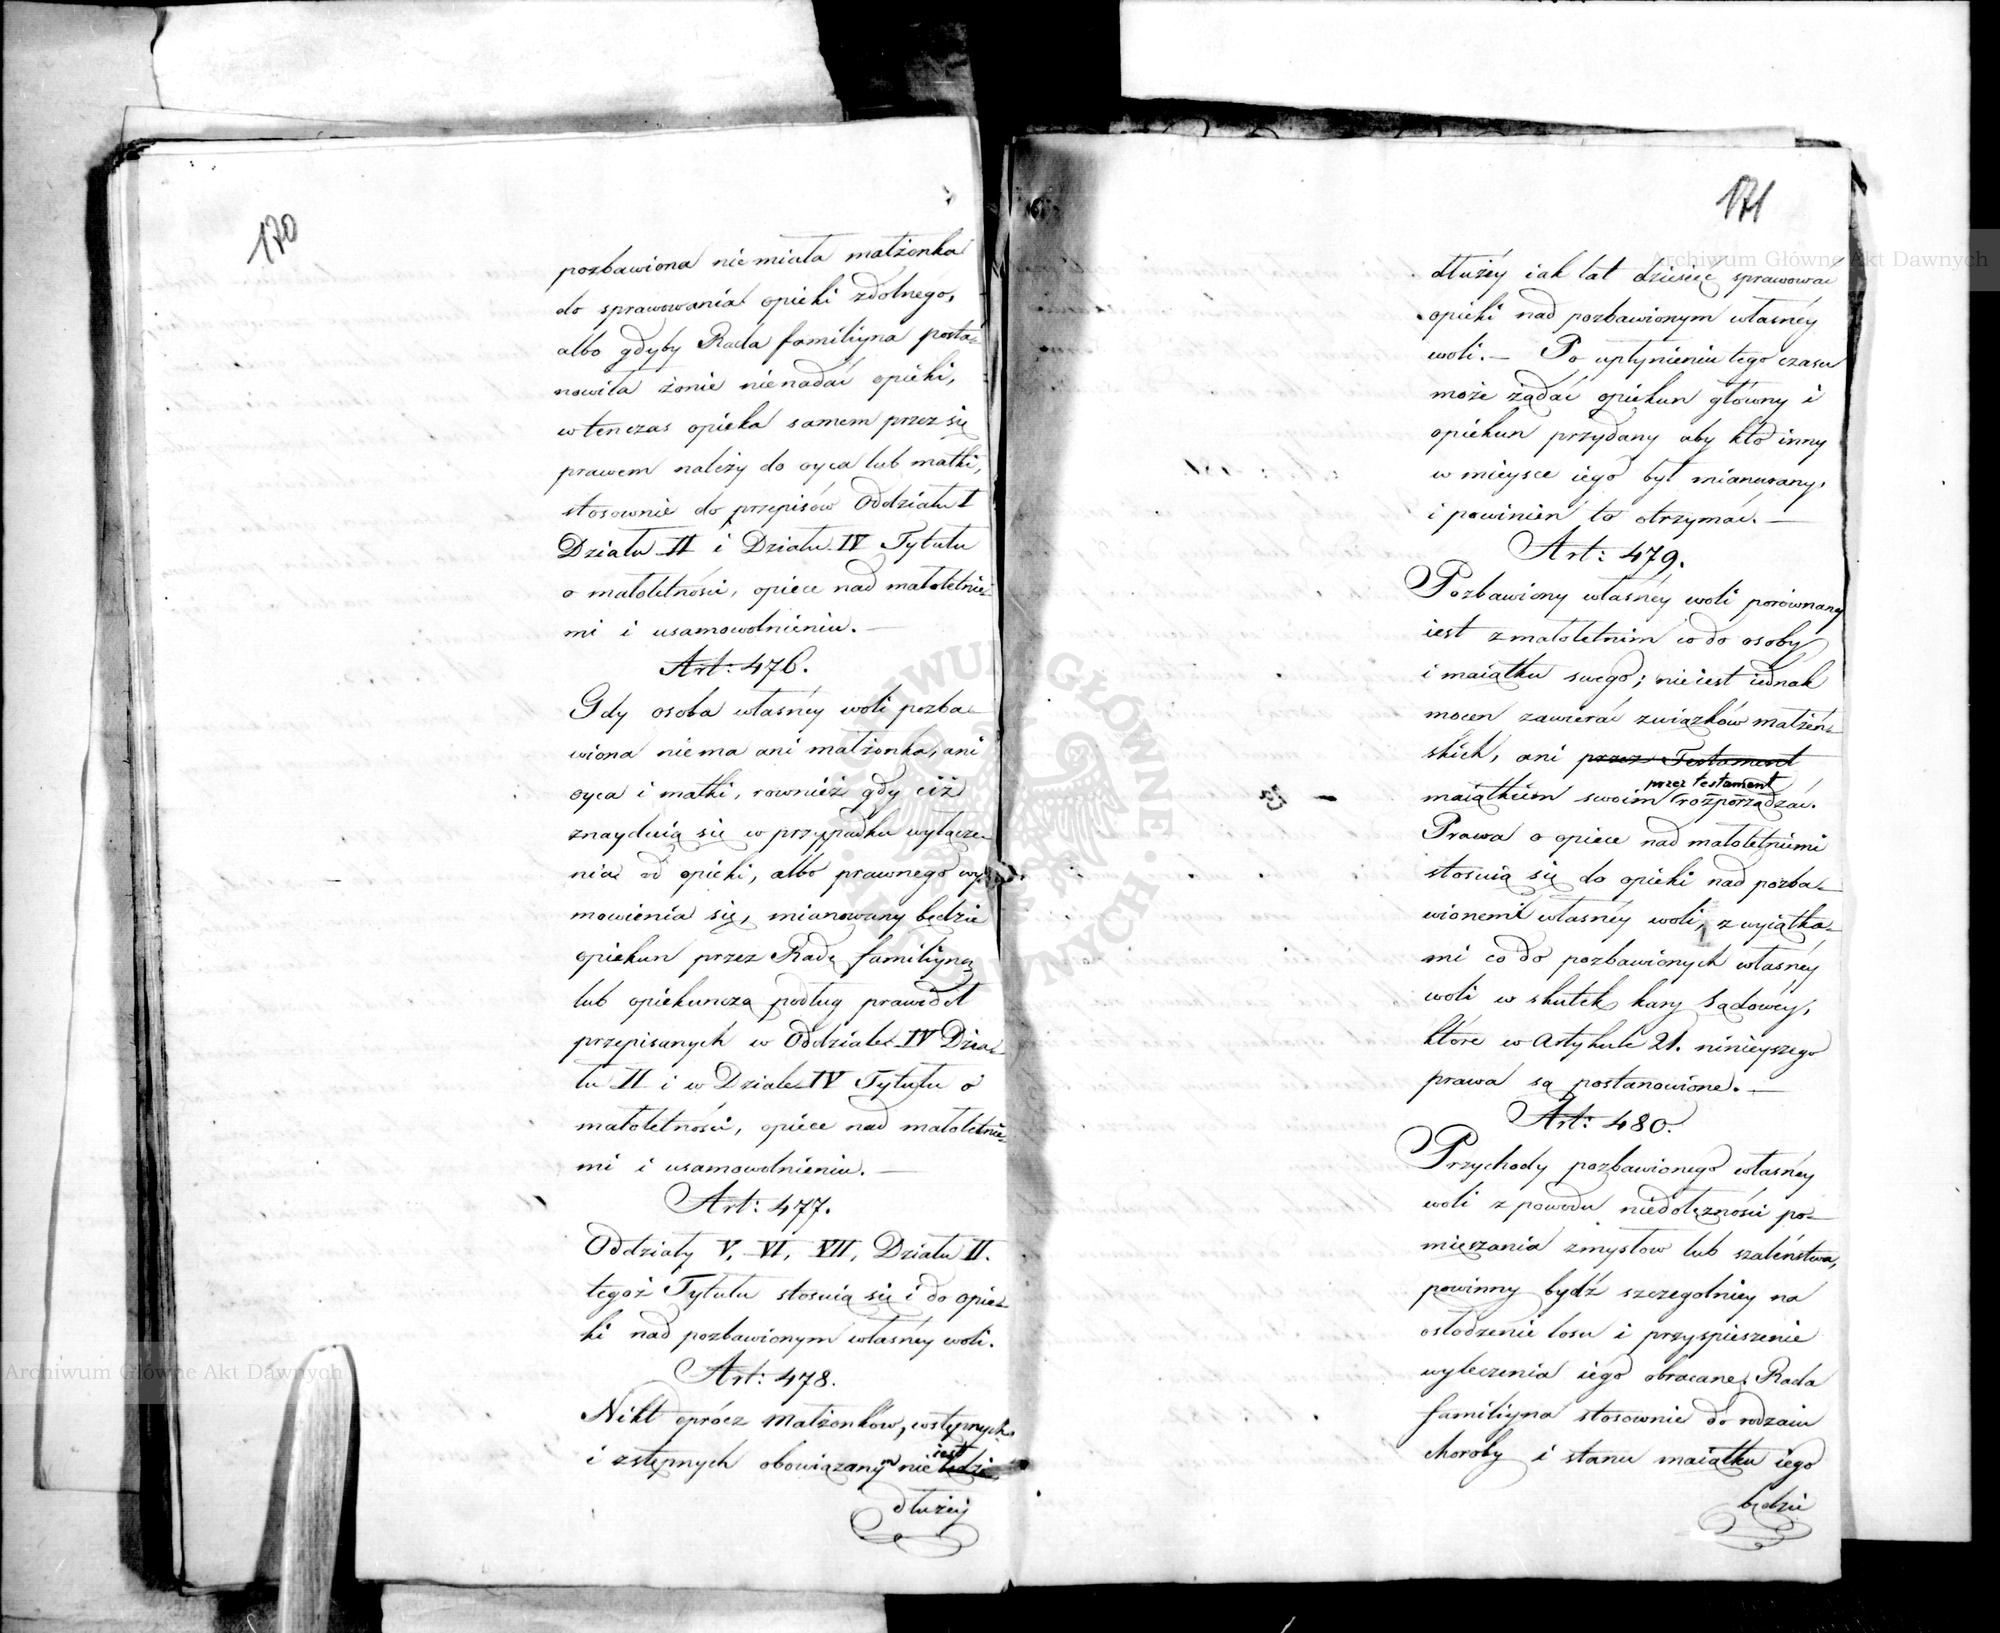 170
pozbawiona nie miała małżonka
do sprawowania opieki zdolnego,
albo gdyby Rada familiyna posta-
nowiła żonie nienadać opieki,
wtenczas opieka samem przez się
prawem należy do oyca lub matki,
stosownie do przepisów Oddziału I
Działu II i Działu IV Tytułu
o małoletności, opiece nad małoletnie-
mi i usamowolnieniu. —
Art: 476.
Gdy osoba własney woli pozba-
wiona niema ani małżonka, ani
oyca i matki, rownież gdy ciż
znayduią się w przypadku wyłącze-
nia od opieki, albo prawnego wy-
mowienia się, mianowany będzie
opiekun przez Radę familiyną
lub opiekunczą podług prawideł
przepisanych w Oddziale IV Dzia-
łu II i w Dziale IV Tytułu o
małoletności, opiece nad małoletnie-
mi i usamowolnieniu. —
Art: 477.
Oddziały V, VI, VII, Działu II.
tegoż Tytułu stosuią się i do opie-
ki nad pozbawionym własney woli.
Art: 478.
Nikt oprócz małżonków, wstępnych
i zstępnych obowiązanym nie jest będzie
dłużey
171
dłużey iak lat dziesięć sprawować
opieki nad pozbawionym własney
woli. — Po upłynieniu tego czasu
może żądać opiekun główny i
opiekun przydany aby kto inny
w mieysce iego był mianowany,
i powinien to otrzymać. —
Art: 479.
Pozbawiony własney woli porównany
iest z małoletnim co do osoby
i maiątku swego; nieiest iednak
mocen zawierać związków małżeń-
skich, ani przez Testament
przez testament
maiątkiem swoim rozporządzać.
Prawa o opiece nad małoletniemi
stosuią się do opieki nad pozba-
wionemi własney woli, z wyiątka-
mi co do pozbawionych własney
woli w skutek kary Sądowey,
które w Artykule 21. ninieyszego
prawa są postanowione. —
Art: 480.
Przychody pozbawionego własney
woli z powodu niedołężności po-
mięszania zmysłow lub szaleństwa,
powinny bydź szczegolniey na
osłodzenie losu i przyspieszenie
wyleczenia iego obracane. Rada
familiyna stosownie do rodzaiu
choroby i stanu maiątku iego
będzie
Archiwum Główne Akt Dawnych
Archiwum Główne Akt Dawnych
ARCHIWUM GŁÓWNE AKT DAWNYCH